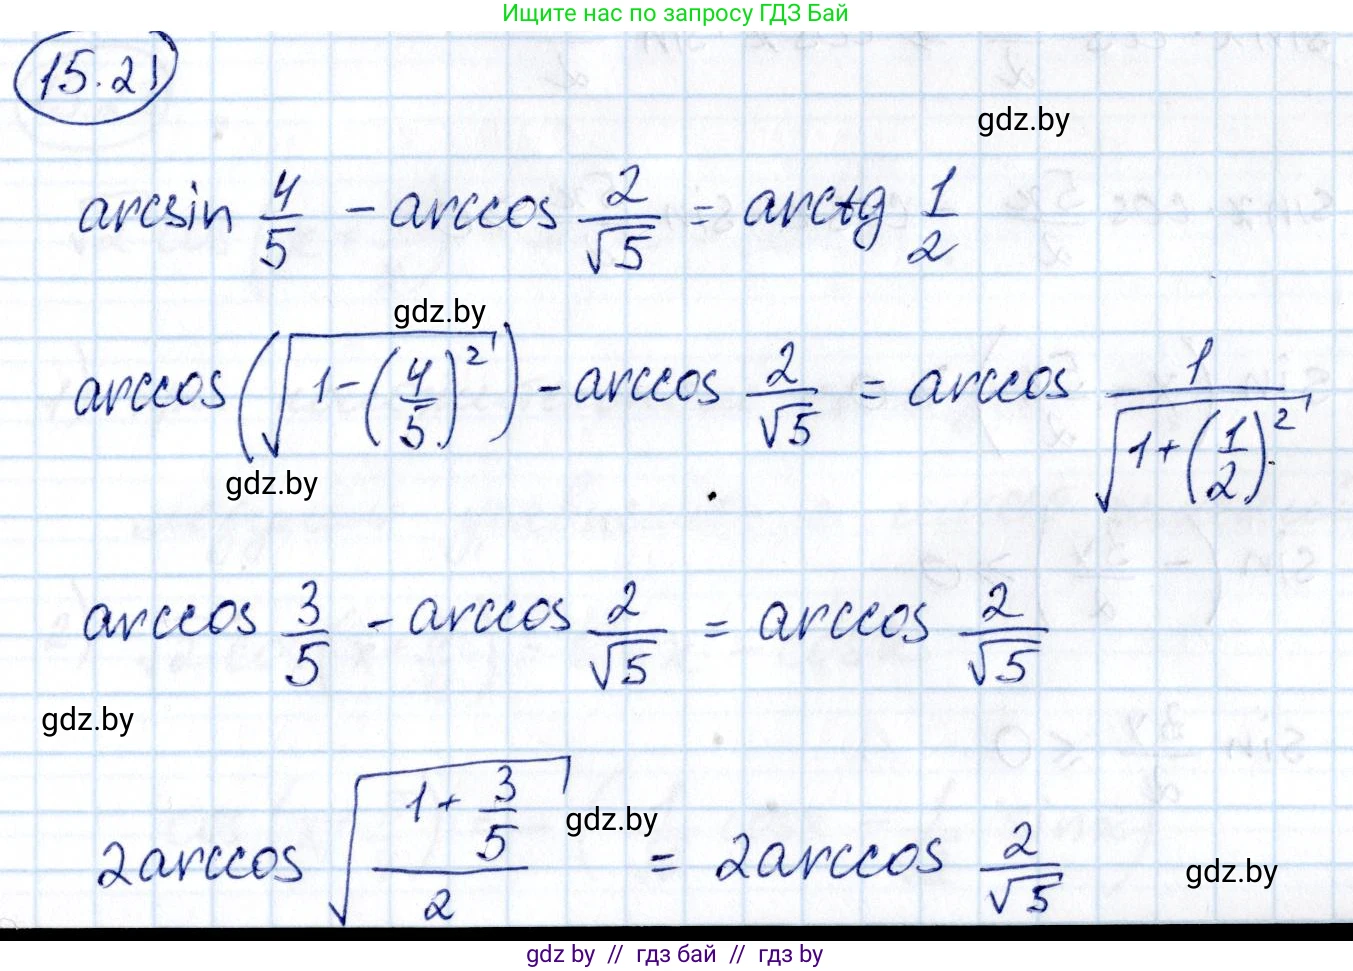 Ищите нас по запросу ГДЗ Бай
15.21
gdz.by
arcsin 4/5 - arccos 2/√5 = arctg 1/2
gdz.by
arccos(√(1-(4/5)²)) - arccos 2/√5 = arccos 1/√(1+(1/2)²)
gdz.by
arccos 3/5 - arccos 2/√5 = arccos 2/√5
gdz.by
2arccos √((1+3/5)/2) = 2arccos 2/√5
gdz.by
gdz.by
gdz.by // гдз бай // гдз by